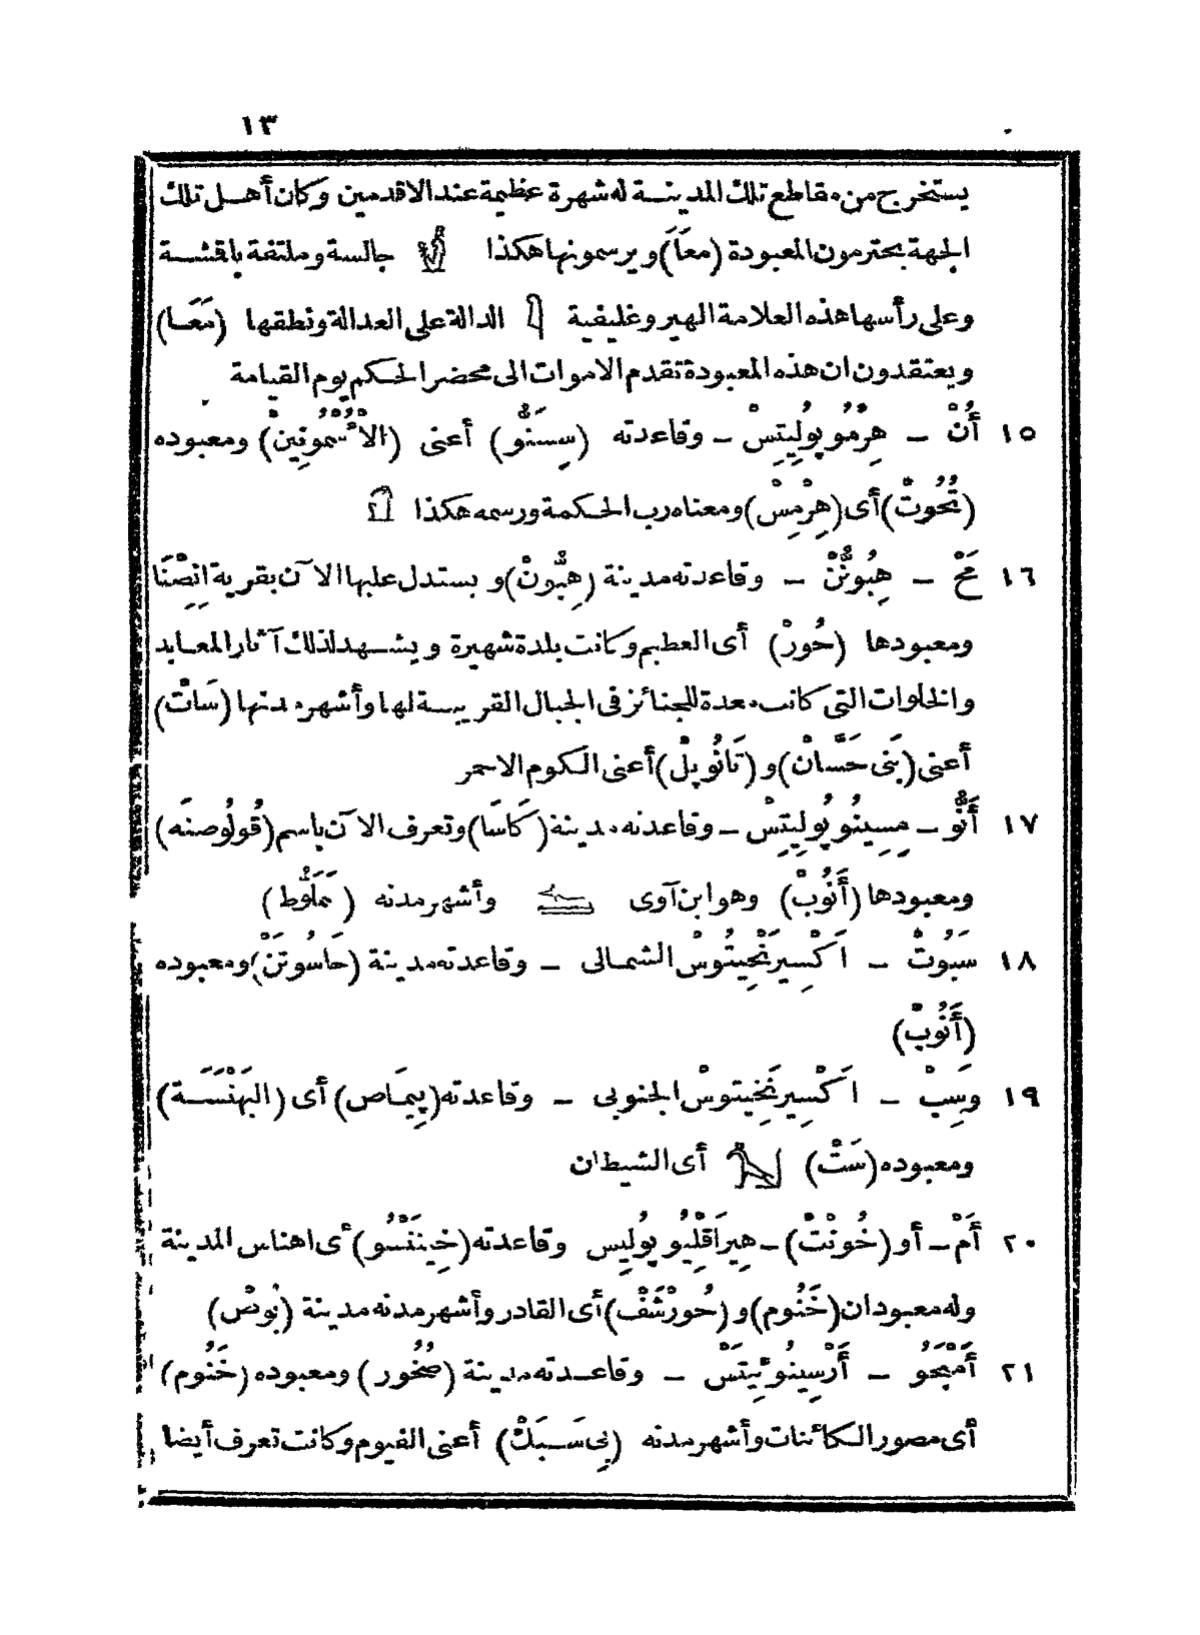 ١٣
يستخرج من مقاطع تلك المدينة له شهرة عظيمة عند الاقدمين وكان أهل تلك
الجهة يحترمون المعبودة (معَاَ) ويرسمونها هكذا جالسة وملتفة باقشة
وعلى رأسها هذه العلامة الهيروغليفية الدالة على العدالة ونطقها (مَعَا)
ويعتقدون ان هذه المعبودة تقدم الاموات الى محضر الحكم يوم القيامة
١٥ أُنْ ـ هِرْمُوپُولِيتِسْ ـ وقاعدته (سِسِنُّو) أعنى (الاُشْمُونِينْ) ومعبوده
(تُحُوتْ) أى (هِرْمِسْ) ومعناه رب الحكمة ورسمه هكذا
١٦ مَحْ ـ هِبُونُّنْ ـ وقاعدته مدينة (هِبُّونْ) ويستدل عليها الآن بقرية انِصْنَا
ومعبودها (حُورْ) أى العظيم وكانت بلدة شهيرة ويشهد لذلك آثار المعابد
والخلوات التى كانت معدة للجنائز فى الجبال القريبة لها وأشهر مدنها (سَاتْ)
أعنى (بَنى حَسَّانْ) و (تَانُوپِلْ) أعنى الكوم الاحمر
١٧ أَنُّو ـ مِسِينُوپُولِيتِسْ ـ وقاعدته مدينة (كَاسَا) وتعرف الآن باسم (قُولُوصنَه)
ومعبودها (أَنُوبْ) وهو ابن آوى وأشهر مدنه (سَمَلُّوط)
١٨ سَبُوتْ ـ اَكْسِيرَنْخِيتُوسْ الشمالى ـ وقاعدته مدينة (حَاسُوتَنْ) ومعبوده
(أَنُوبْ)
١٩ وَسِبْ ـ اَكْسِيرَنْخِيتوسْ الجنوبى ـ وقاعدته (پِيمَاص) أى (البَهْنَسَة)
ومعبوده (سَتْ) أى الشيطان
٢٠ أَمْ ـ أو (خُونْتْ) ـ هِيرَاقْلِيُوپُولِيس وقاعدته (خِينَنْسُو) أى اهناس المدينة
وله معبودان (خَنُوم) و (حُورْشَفْ) أى القادر وأشهر مدنه مدينة (بُوصْ)
٢١ أَمْبَحُو ـ أَرْسِينُوئِيتَسْ ـ وقاعدته مدينة (صُخُور) ومعبوده (خَنُوم)
أى مصور الكائنات وأشهر مدنه (پِى سَبَكْ) أعنى الفيوم وكانت تعرف أيضا